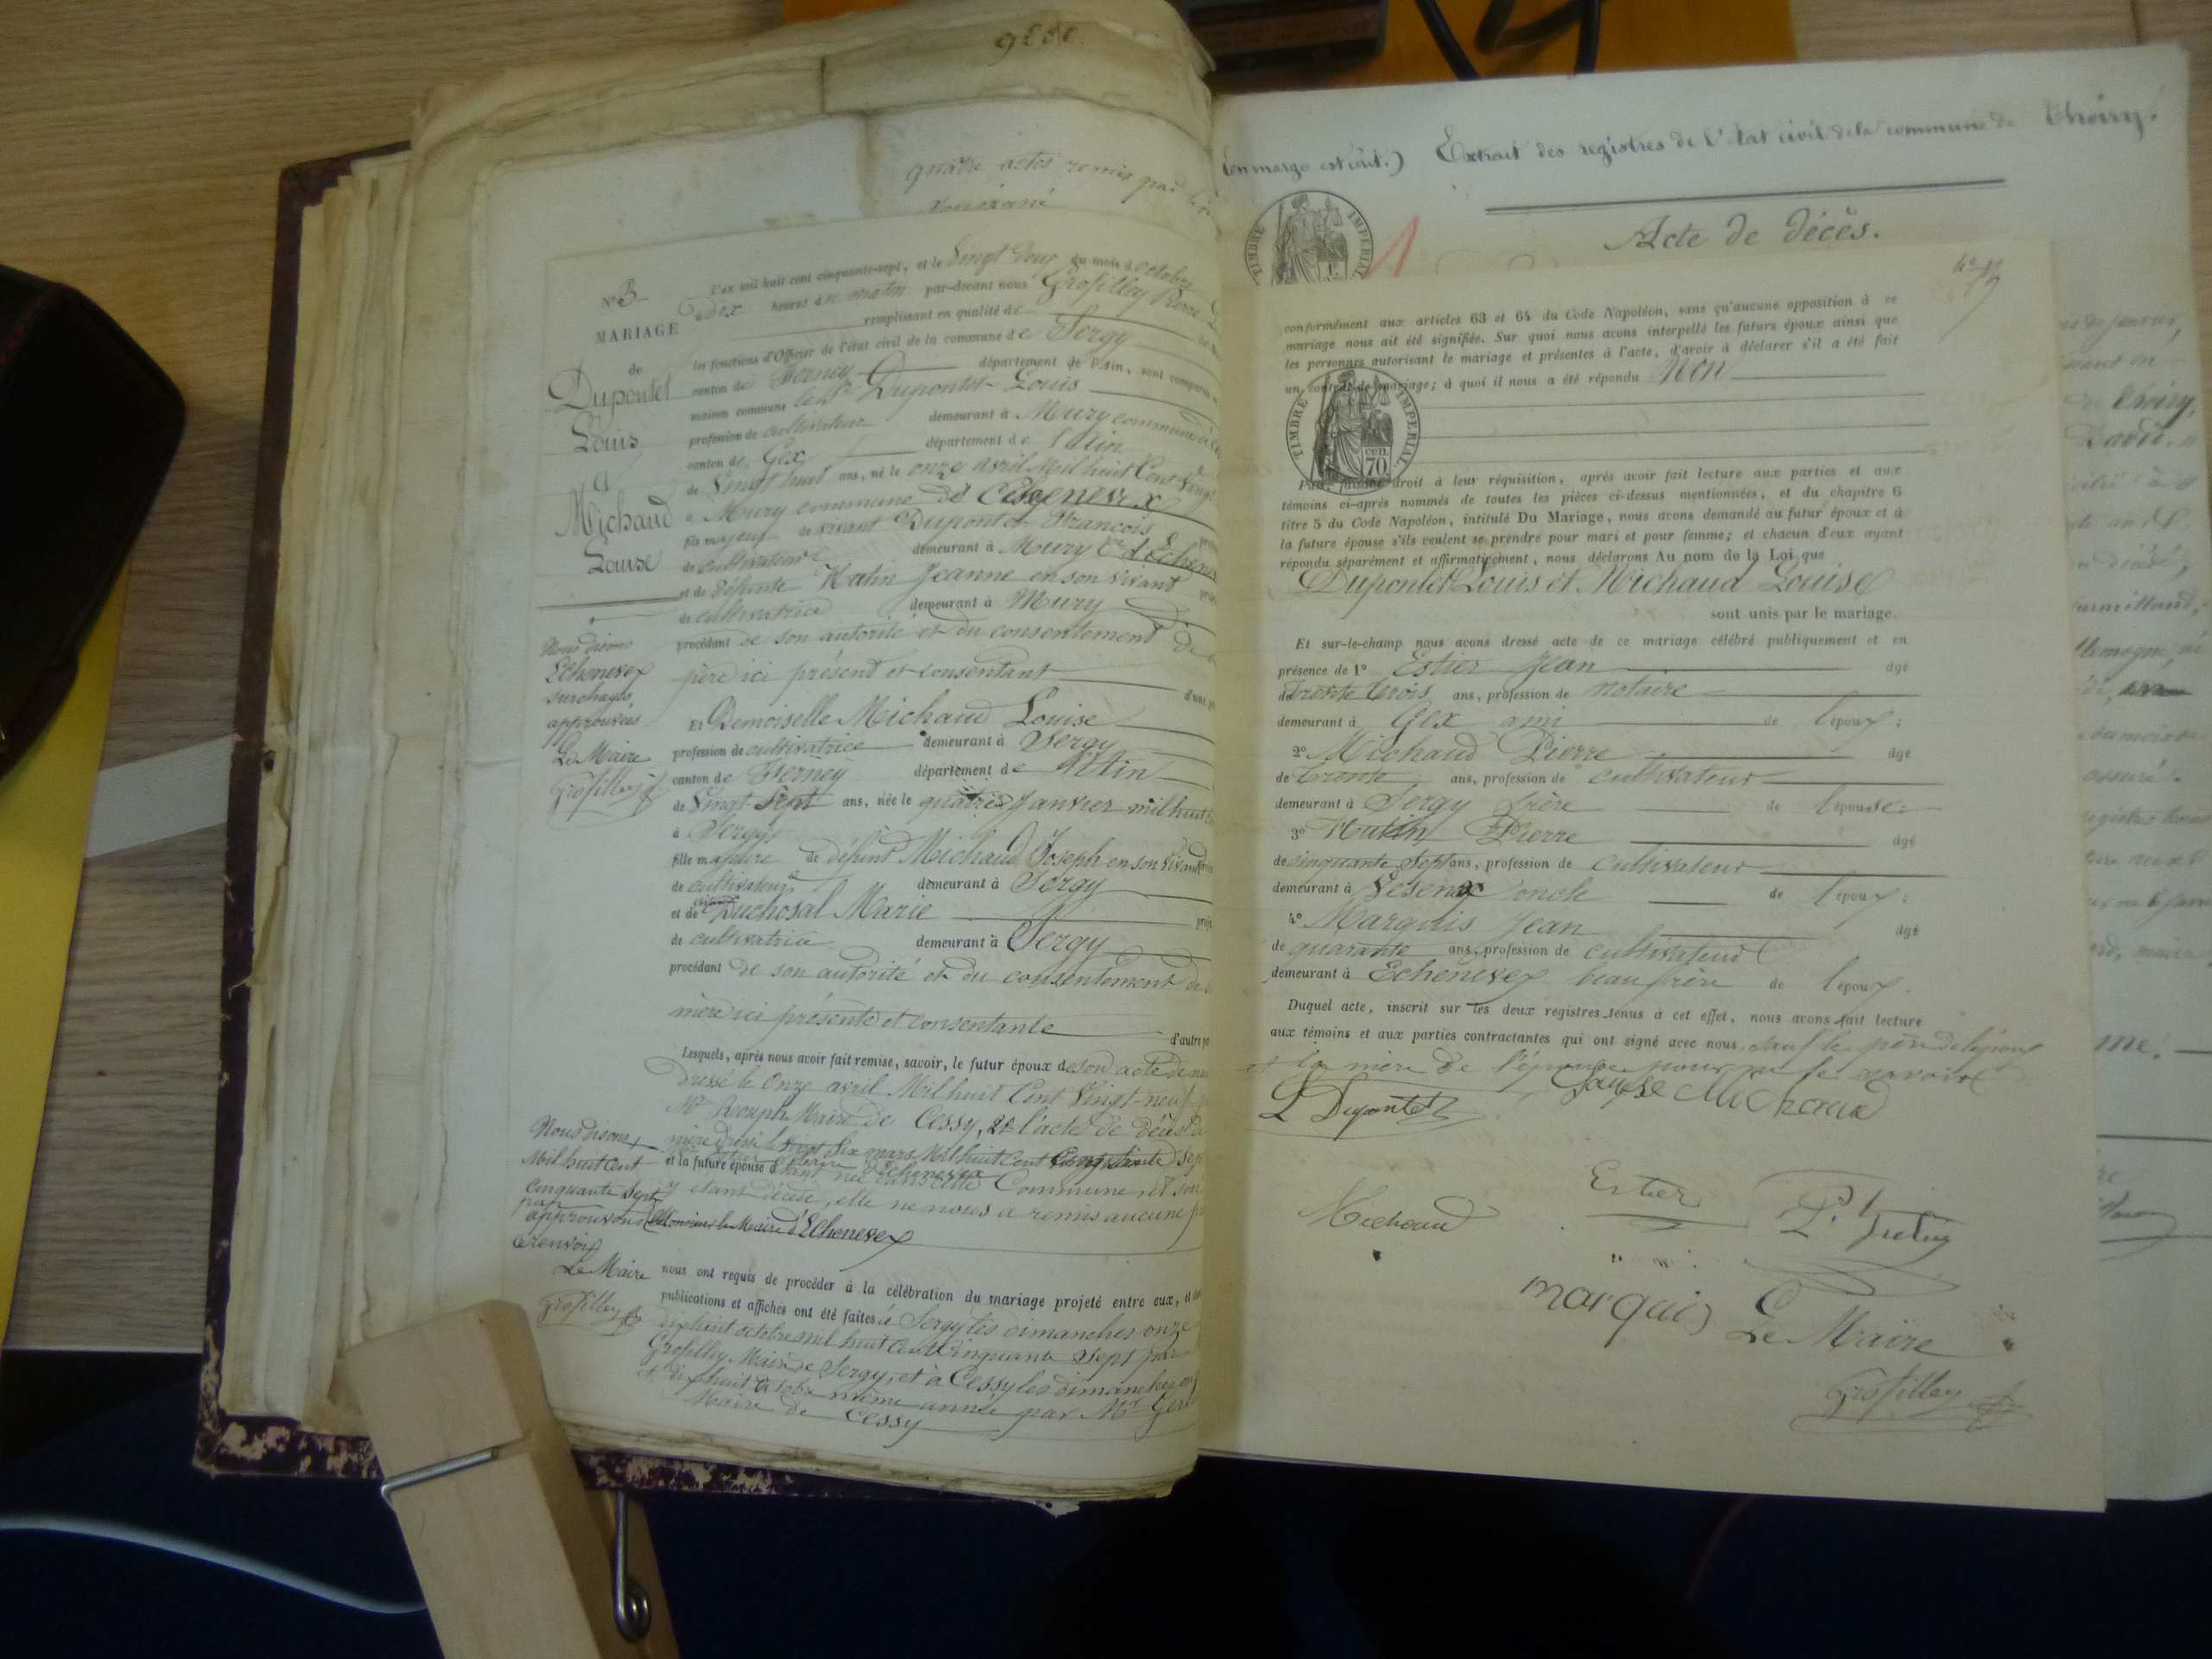 9
quatre actes remis par
N° 3
MARIAGE
de
Dupontet
Louis
et
Michaud
Louise
L'an mil huit cent cinquante-sept, et le Vingt deux du mois d'octobre
à dix heures du matin par-devant nous Grosfilley Pierre
remplissant en qualité de
les fonctions d'Officier de l'état civil de la commune de Sergy
canton de Ferney département de l'Ain, sont comparus
maison commune le Sr Dupontet Louis
profession de cultivateur demeurant à Mury commune d'
canton de Gex département de l'Ain
de Vingt huit ans, né le onze avril Mil huit Cent Vingt
à Mury commune d'Echenevex
fils majeur de vivant Dupontet Francois
de cultivateur demeurant à Mury Cne d'Echene
et de défunte Hutin Jeanne en son vivant
de cultivatrice demeurant à Mury
procédant de son autorité et du consentement de
père ici présent et consentant
d'une pa
Nous disons
Echenevex
surchagés
approuvées
Le Maire
Grosfilley
Et Demoiselle Michaud Louise
profession de cultivatrice demeurant à Sergy
canton de Ferney département de l'Ain
de Vingt Sept ans, née le quatre Janvier mil huit
à Sergy
fille majeure de défunt Michaud Joseph en son vivant
de cultivateur demeurant à Sergy
et de Duchosal Marie
de cultivatrice demeurant à Sergy
procédant de son autorité et du consentement de
mère ici présente et consentante
d'autre pa
Lesquels, après nous avoir fait remise, savoir, le futur époux de son acte de
Dressé le Onze avril Mil huit Cent Vingt-neuf
Mr Rouph Maire de Cessy, et l'acte de décès de
mère dressé le Vingt Six mars Mil huit cent Cinquante Sept
et la future épouse étant née dans cette Commune, et son
y étant décédé, elle ne nous a remis aucune
Monsieur le Maire d'Echenevex
Nous disons
Mil huit Cent
Cinquante Sept
par
approuvons
le renvoi
Le Maire
Grosfilley
nous ont requis de procéder à la célébration du mariage projeté entre eux, et dont
publications et affiches ont été faites à Sergy les dimanches onze
dix huit octobre mil huit Cent Cinquante Sept par
Grosfilley Maire de Sergy, et à Cessy les dimanches
et dix huit octobre même année par Mr
Maire de Cessy
(en marge est écrit.) Extrait des registres de l'état civil de la commune de Thoiry.
Acte de décès.
TIMBRE IMPERIAL
1
conformément aux articles 63 et 64 du Code Napoléon, sans qu'aucune opposition à ce
mariage nous ait été signifiée. Sur quoi nous avons interpellé les futurs époux ainsi que
les personnes autorisant le mariage et présentes à l'acte, d'avoir à déclarer s'il a été fait
un contrat de mariage; à quoi il nous a été répondu Non
TIMBRE IMPERIAL
cen. 70
Puis, faisant droit à leur réquisition, après avoir fait lecture aux parties et aux
témoins ci-après nommés de toutes les pièces ci-dessus mentionnées, et du chapitre 6
titre 5 du Code Napoléon, intitulé Du Mariage, nous avons demandé au futur époux et à
la future épouse s'ils veulent se prendre pour mari et pour femme; et chacun d'eux ayant
répondu séparément et affirmativement, nous déclarons Au nom de la Loi que
Dupontet Louis et Michaud Louise
sont unis par le mariage.
Et sur-le-champ nous avons dressé acte de ce mariage célébré publiquement et en
présence de 1° Estier Jean âgé
de trente trois ans, profession de notaire
demeurant à Gex ami de l'époux;
2° Michaud Pierre âgé
de trente ans, profession de cultivateur
demeurant à Sergy frère de l'épouse;
3° Hutin Pierre âgé
de cinquante Sept ans, profession de cultivateur
demeurant à Vesenex oncle de l'époux;
4° Marquis Jean âgé
de quarante ans, profession de cultivateur
demeurant à Echenevex beau frère de l'époux.
Duquel acte, inscrit sur les deux registres tenus à cet effet, nous avons fait lecture
aux témoins et aux parties contractantes qui ont signé avec nous Sauf le père de l'époux
et la mère de l'épouse pour ne le savoir
L Dupontet Louise Michaud
Michaud Estier P. Hutin
marquis Le Maire
Grosfilley
Thoiry,